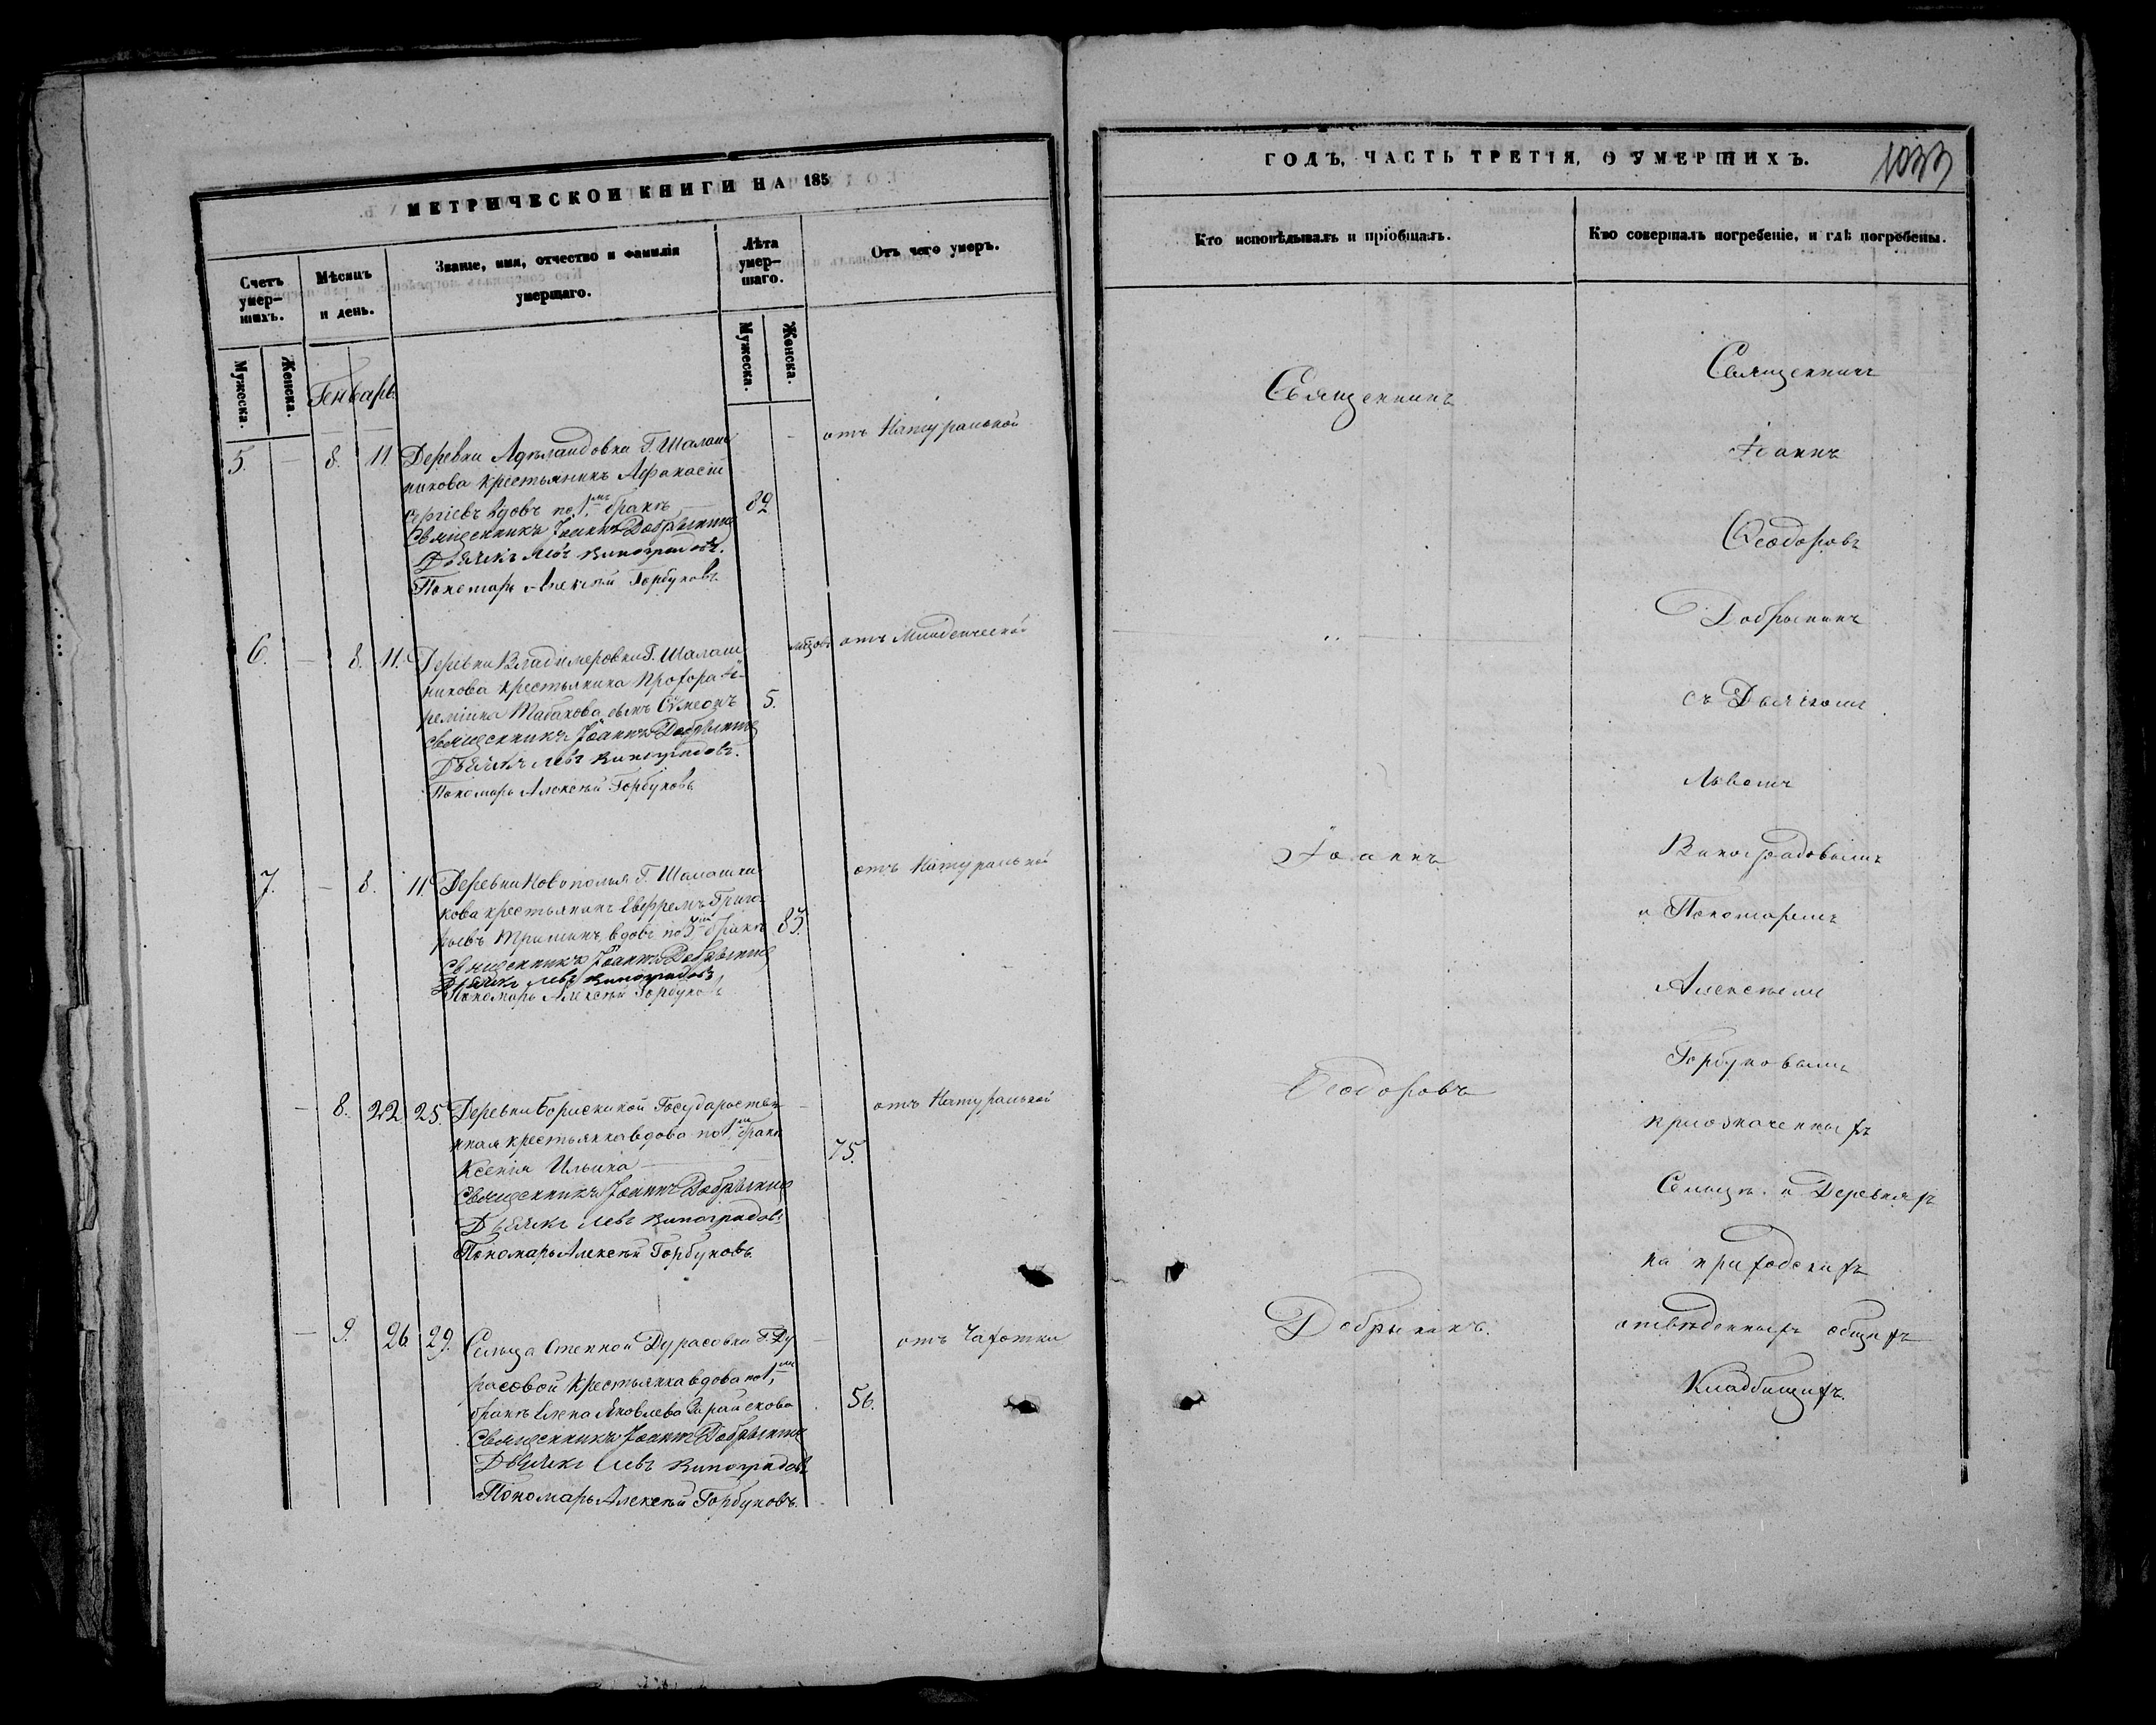 МЕТРИЧЕСКОЙ КНИГИ НА 185
Счетъ умер-шихъ.
Мѣсяцъ и день.
Званіе, имя, отчество и фамилія умершаго.
Лѣта умер-шаго.
Отъ чего умеръ.
Мужеска.
Женска.
Генварь
Мужеска.
Женска.
5. — 8. 11 Деревни Г. Шалаш — отъ Натуральной
никова крестьянинъ Афанасій
Сергіевъ вдовъ по 1мъ бракѣ 82
Священникъ Іоаннъ Добрынинъ
Дьячекъ Левъ Виноградовъ.
Пономарь Алексѣй Горбуновъ
6. — 8. 11. Деревни Владимеровки Г. Шалаш мѣсяцовъ отъ Младенческой
никова крестьянина Прохора Ѳ-
Табакова сынъ Сѵмеонъ 5.
Священникъ Іоаннъ Добрынинъ
Дьячекъ Левъ Виноградовъ.
Пономарь Алексѣй Горбуновъ
7. — 8. 11 Деревни Новополья Г. Шалашни отъ Натуральной
кова крестьянинъ Евфремъ Григо
рьевъ Тришинъ, вдовъ по 3мъ бракѣ 83.
Священникъ Іоаннъ Добрынинъ
Дьячекъ Левъ Виноградовъ
Пономарь Алексѣй Горбуновъ
— 8. 22 25. Деревни Борискиной Государствен — отъ Натуральной
ная крестьянка вдова по 1мъ бракѣ
Ксенія Ильина 75.
Священникъ Іоаннъ Добрынинъ
Дьячекъ Левъ Виноградовъ
Пономарь Алексѣй Горбуновъ
— 9. 26 29. Сельца Степной Дурасовки Г. Ду — отъ Чахотки
расовой крестьянка вдова по 1мъ
бракѣ Елена Яковлева 56.
Священникъ Іоаннъ Добрынинъ
Дьячекъ Левъ Виноградовъ
Пономарь Алексѣй Горбуновъ.
ГОДЪ, ЧАСТЬ ТРЕТІЯ, О УМЕРШИХЪ.
1033
Кто исповѣдывалъ и пріобщалъ.
Кто совершалъ погребеніе, и гдѣ погребены.
Священникъ
Іоаннъ
Ѳеодоровъ
Добрынинъ.
Священникъ
Іоаннъ
Ѳеодоровъ
Добрынинъ
съ Дьячкомъ
Львомъ
Виноградовымъ
и Пономаремъ
Алексѣемъ
Горбуновымъ
приозначенныхъ
Сельцѣ. и Деревняхъ
на приходскихъ
отведенныхъ общихъ
Кладбищахъ.